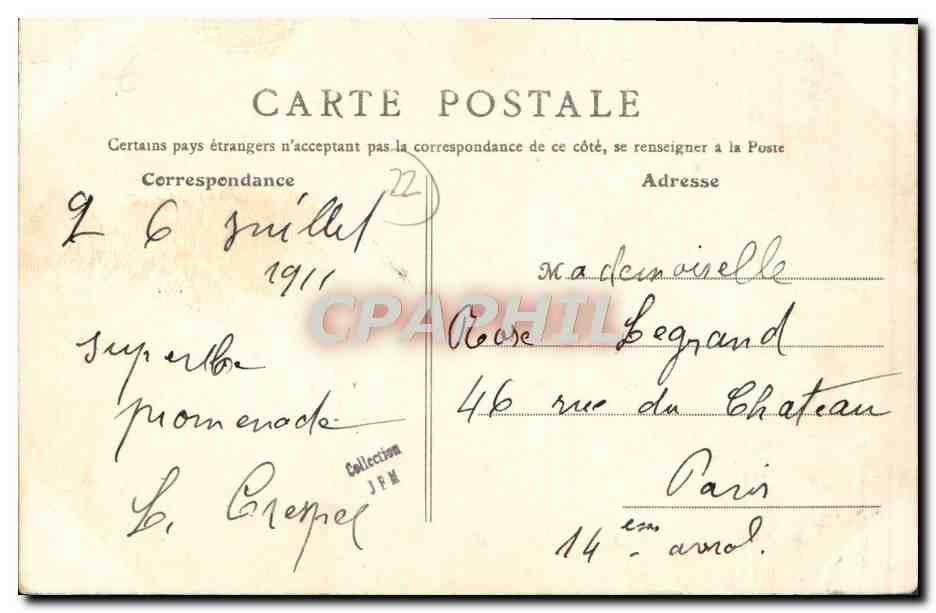 CARTE POSTALE
Certains pays étrangers n'acceptant pas la correspondance de ce côté, se renseigner à la Poste
Correspondance
22
6 Juillet
1911
superbe
promenade
Collection
JPM
Adresse
Mademoiselle
Rose Legrand
46 rue du Chateau
Paris
14 eme
CPAPHIL